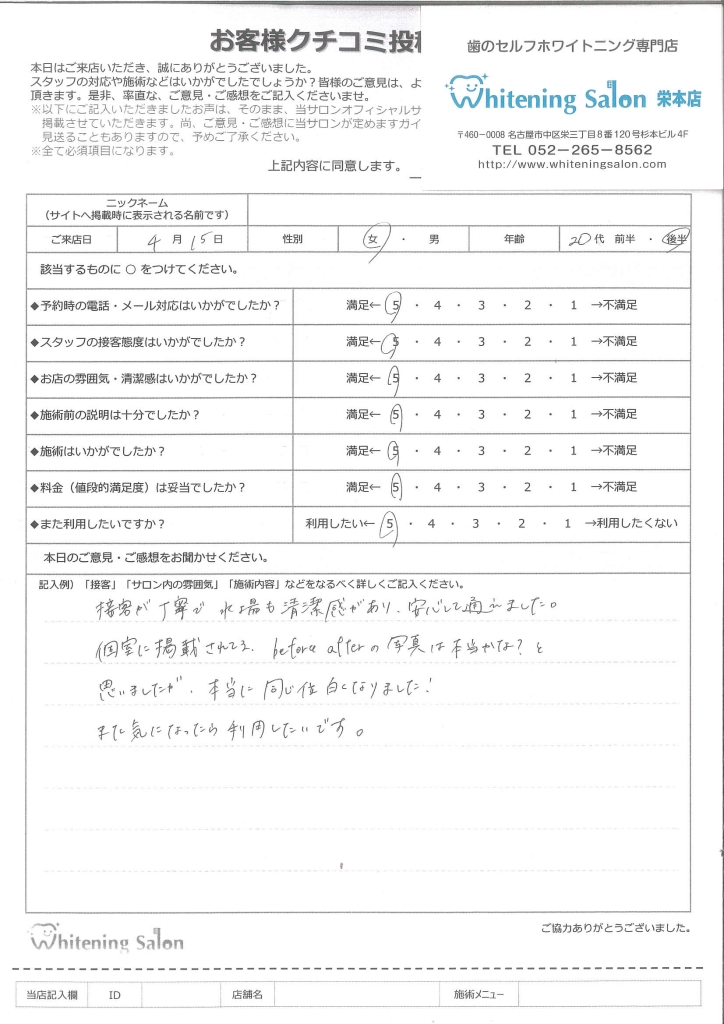 お客様クチコミ投稿
本日はご来店いただき、誠にありがとうございました。
スタッフの対応や施術などはいかがでしたでしょうか?皆様のご意見は、よ
頂きます。是非、率直な、ご意見・ご感想をご記入くださいませ。
※以下にご記入いただきましたお声は、そのまま、当サロンオフィシャルサ
掲載させていただきます。尚、ご意見・ご感想に当サロンが定めますガイ
見送ることもありますので、予めご了承ください。
※全て必須項目になります。
上記内容に同意します。
歯のセルフホワイトニング専門店
Whitening Salon 栄本店
〒460-0008 名古屋市中区栄三丁目8番120号杉本ビル4F
TEL 052-265-8562
http://www.whiteningsalon.com
ニックネーム
(サイトへ掲載時に表示される名前です)
ご来店日 4月15日 性別 女・男 年齢 20代 前半・後半
該当するものに○をつけてください。
◆予約時の電話・メール対応はいかがでしたか? 満足← 5・4・3・2・1 →不満足
◆スタッフの接客態度はいかがでしたか? 満足← 5・4・3・2・1 →不満足
◆お店の雰囲気・清潔感はいかがでしたか? 満足← 5・4・3・2・1 →不満足
◆施術前の説明は十分でしたか? 満足← 5・4・3・2・1 →不満足
◆施術はいかがでしたか? 満足← 5・4・3・2・1 →不満足
◆料金(値段的満足度)は妥当でしたか? 満足← 5・4・3・2・1 →不満足
◆また利用したいですか? 利用したい← 5・4・3・2・1 →利用したくない
本日のご意見・ご感想をお聞かせください。
記入例)「接客」「サロン内の雰囲気」「施術内容」などをなるべく詳しくご記入ください。
接客が丁寧で水場も清潔感があり、安心して通えました。
個室に掲載されてる before afterの写真は本当かな?と
思いましたが、本当に同じ位白くなりました!
また気になったら利用したいです。
ご協力ありがとうございました。
Whitening Salon
当店記入欄 ID 店舗名 施術メニュー